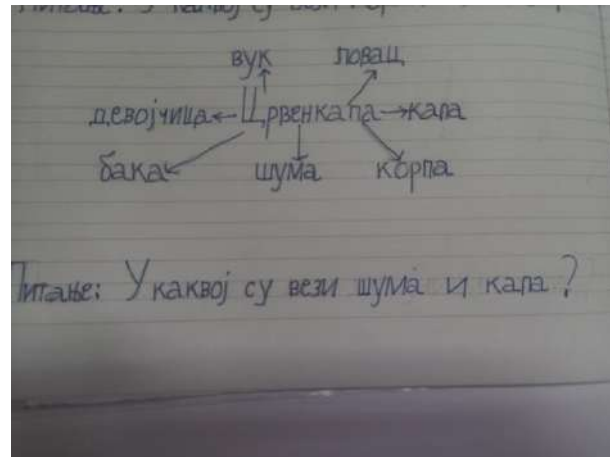 вук ловац
девојчица Црвенкапа капа
бака шума корпа
Питање: У каквој су вези шума и капа?